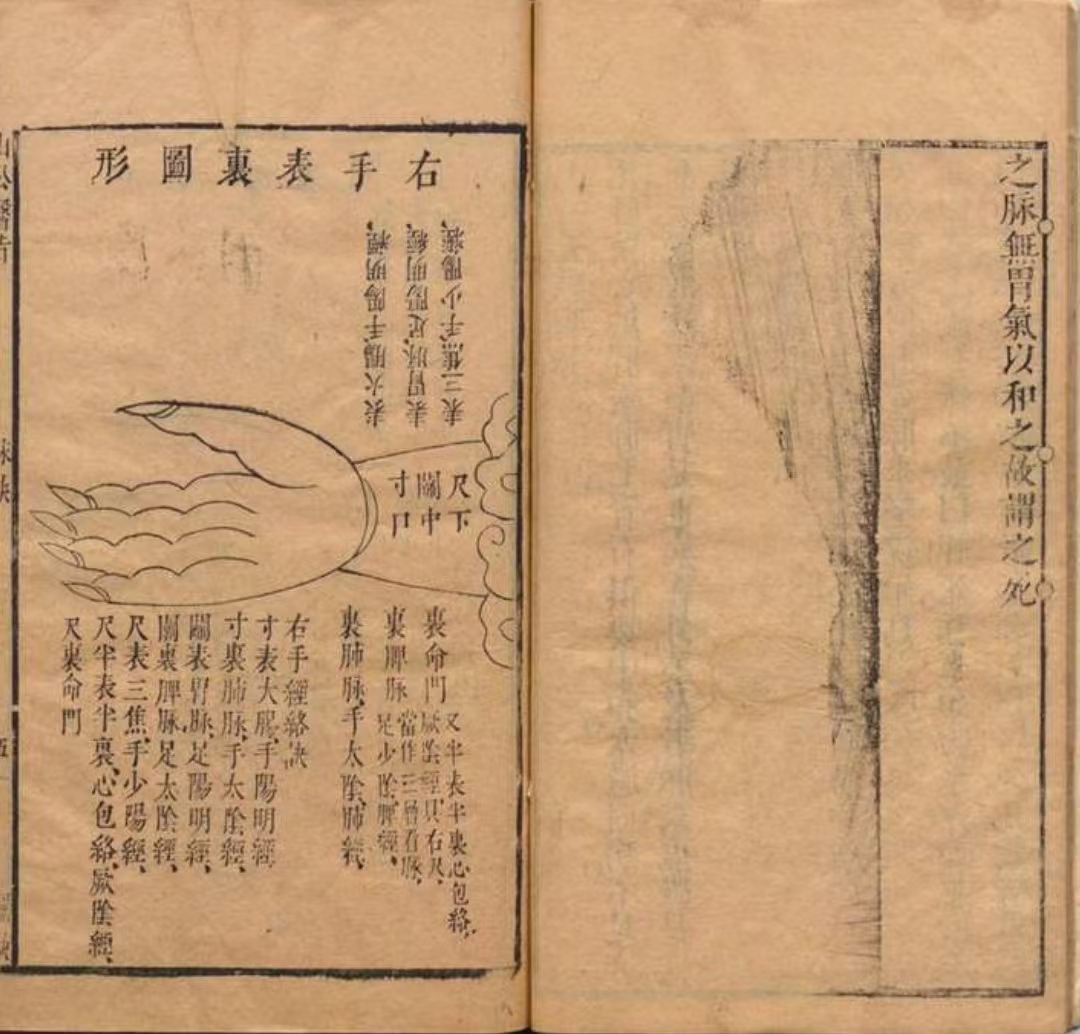 之脉無胃氣以和之故謂之死
右手表裏圖形
表三焦手少陽經
表胃脉足陽明經
表大腸手陽明經
尺下
關中
寸口
裏命門又半表半裏心包絡、
厥陰經只右尺、
當作三層看脉、
裏脾脉足少陰脾經、
裏肺脉、手太陰肺經、
右手經絡訣
寸表大腸、手陽明經
寸裏肺脉、手太陰經、
關表胃脉、足陽明經、
關裏脾脉足太陰經、
尺表三焦、手少陽經、
尺半表半裏、心包絡、厥陰經、
尺裏命門